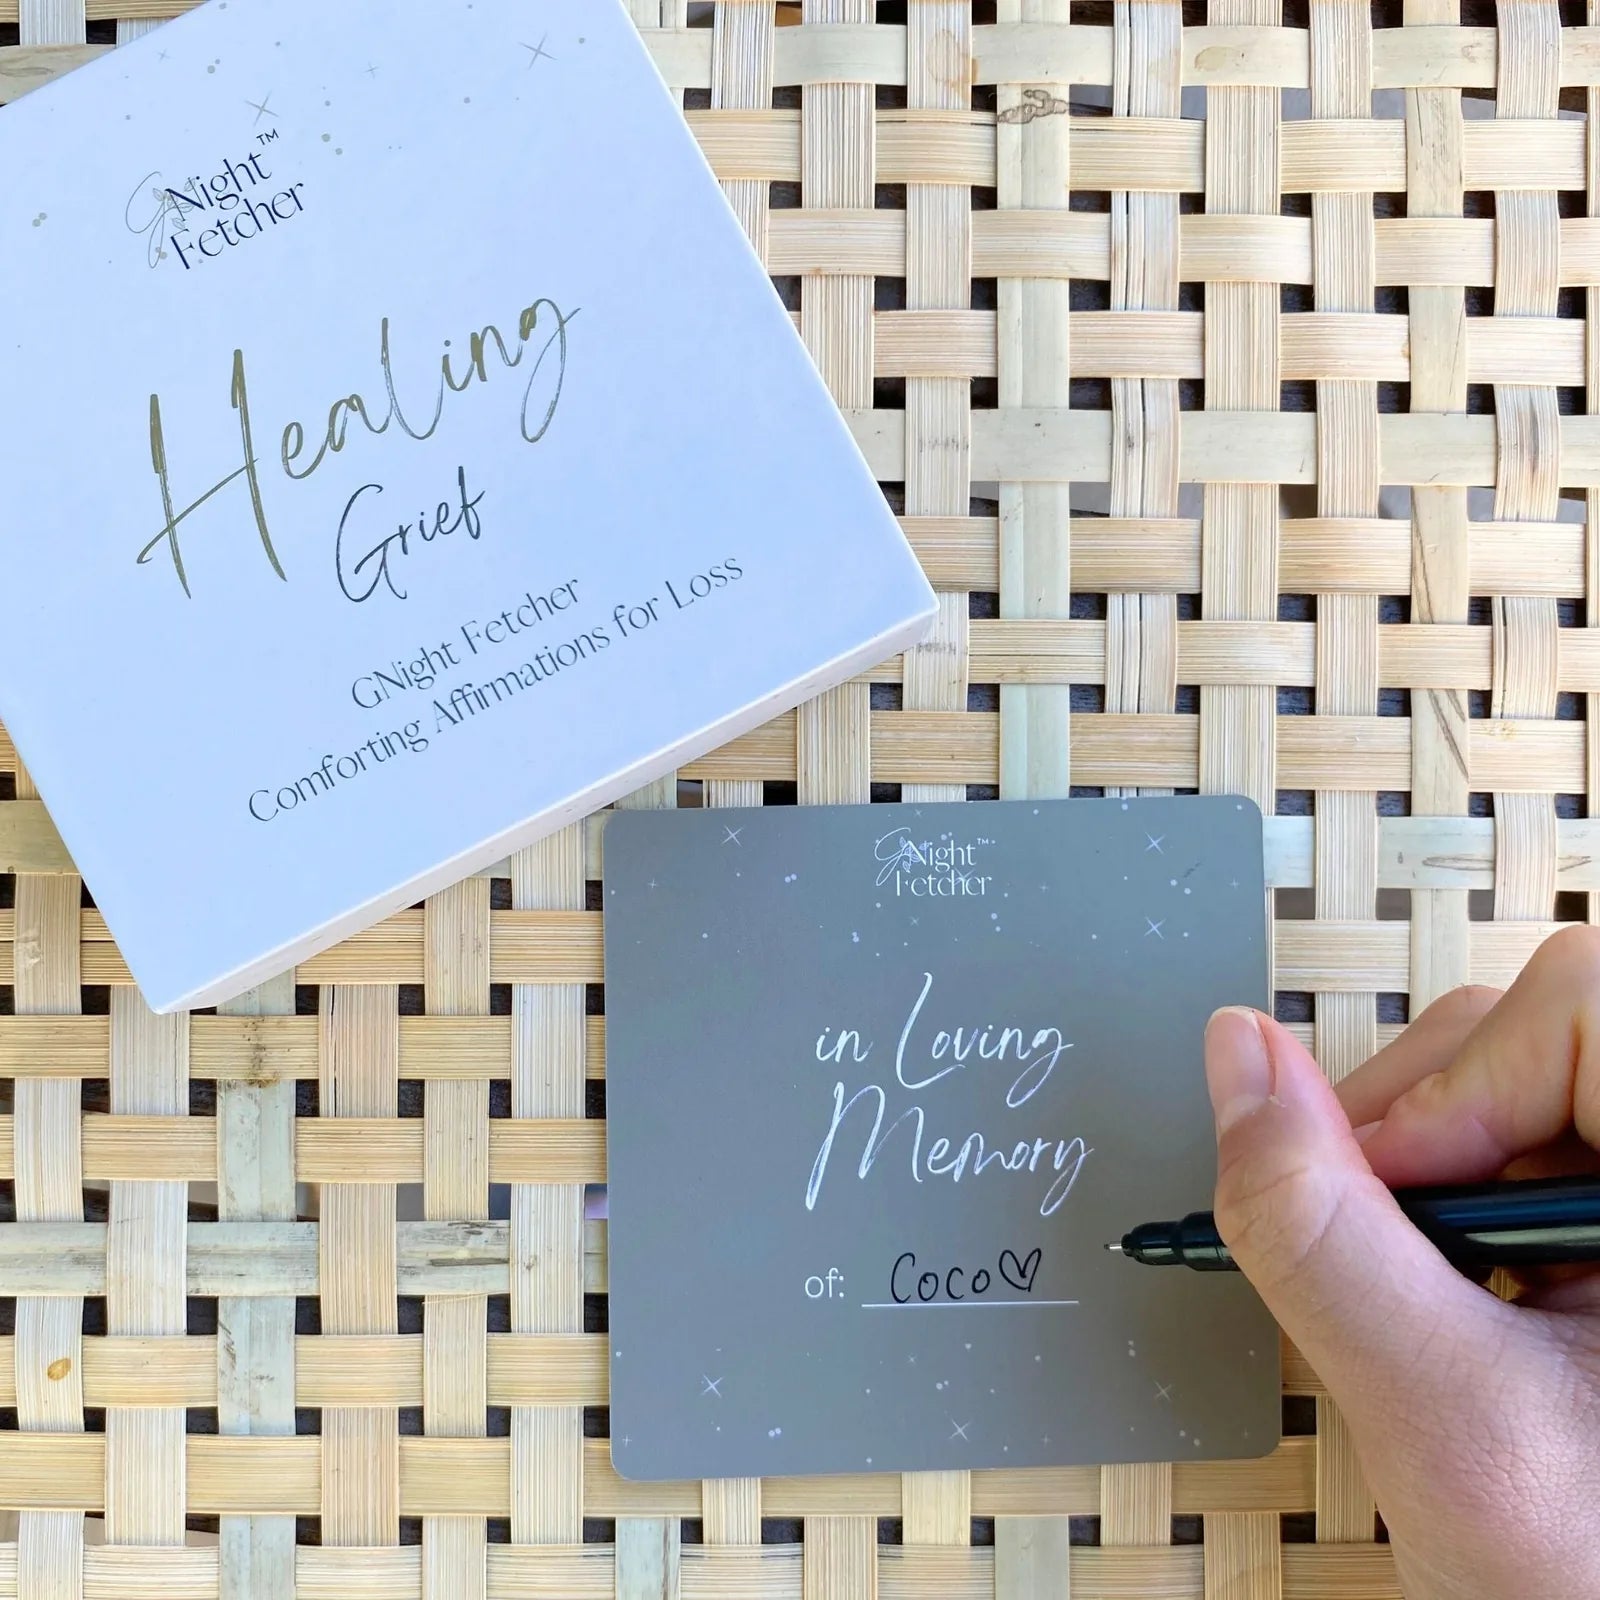 GNight™
Fetcher
Healing
Grief
GNight Fetcher
Comforting Affirmations for Loss
GNight™
Fetcher
in Loving
Memory
of: Coco♡